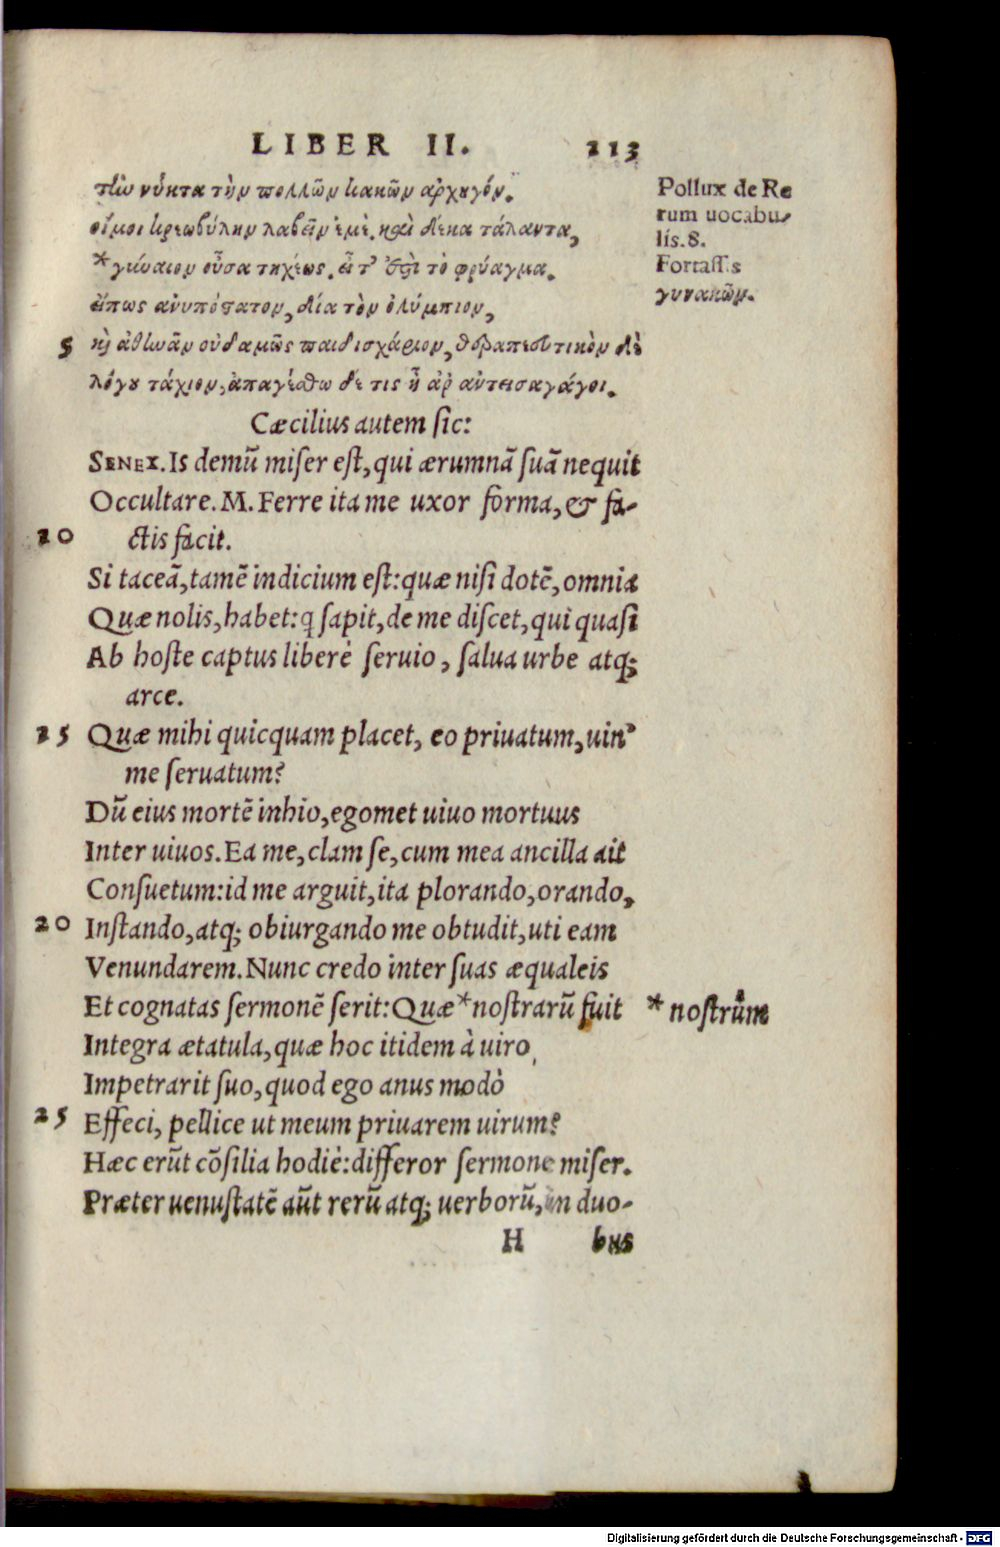 LIBER II. 213
τὴν νύκτα τὴν πολλῶν κακῶν ἀρχηγόν.
οἴμοι κρεωβύλην λαβεῖν ἐμὲ. καὶ δέκα τάλαντα,
*γύναιον οὖσα πηχέως. εἶτ' ἐστὶ τὸ φρύαγμα.
εἴπως ἀνυπόστατον, δία τὸν ὀλύμπιον,
5 κὴ ἀθηνᾶν οὐδαμῶς παιδισχάριον, θεραπευτικὸν δὲ
λόγου τάχιον, ἀπαγέσθω δέ τις ἢ ἀρ ἀντεισαγάγοι.
Cæcilius autem sic:
SENEX. Is demũ miser est, qui ærumnã suã nequit
Occultare. M. Ferre ita me uxor forma, & fa-
10 ctis facit.
Si taceã, tamẽ indicium est: quæ nisi dotẽ, omnia
Quæ nolis, habet: q sapit, de me discet, qui quasi
Ab hoste captus liberè seruio, salua urbe atq;
arce.
15 Quæ mihi quicquam placet, eo priuatum, uin'
me seruatum?
Dũ eius mortẽ inhio, egomet uiuo mortuus
Inter uiuos. Ea me, clam se, cum mea ancilla ait
Consuetum: id me arguit, ita plorando, orando,
20 Instando, atq; obiurgando me obtudit, uti eam
Venundarem. Nunc credo inter suas æqualeis
Et cognatas sermonẽ serit: Quæ *nostrarũ fuit
Integra ætatula, quæ hoc itidem à uiro
Impetrarit suo, quod ego anus modò
25 Effeci, pellice ut meum priuarem uirum?
Hæc erũt cõsilia hodiè: differor sermone miser.
Præter uenustatẽ aũt rerũ atq; uerborũ, in duo-
H bus
Pollux de Re
rum uocabu-
lis. 8.
Fortassis
γυναικῶν.
* nostrûm
Digitalisierung gefördert durch die Deutsche Forschungsgemeinschaft - DFG